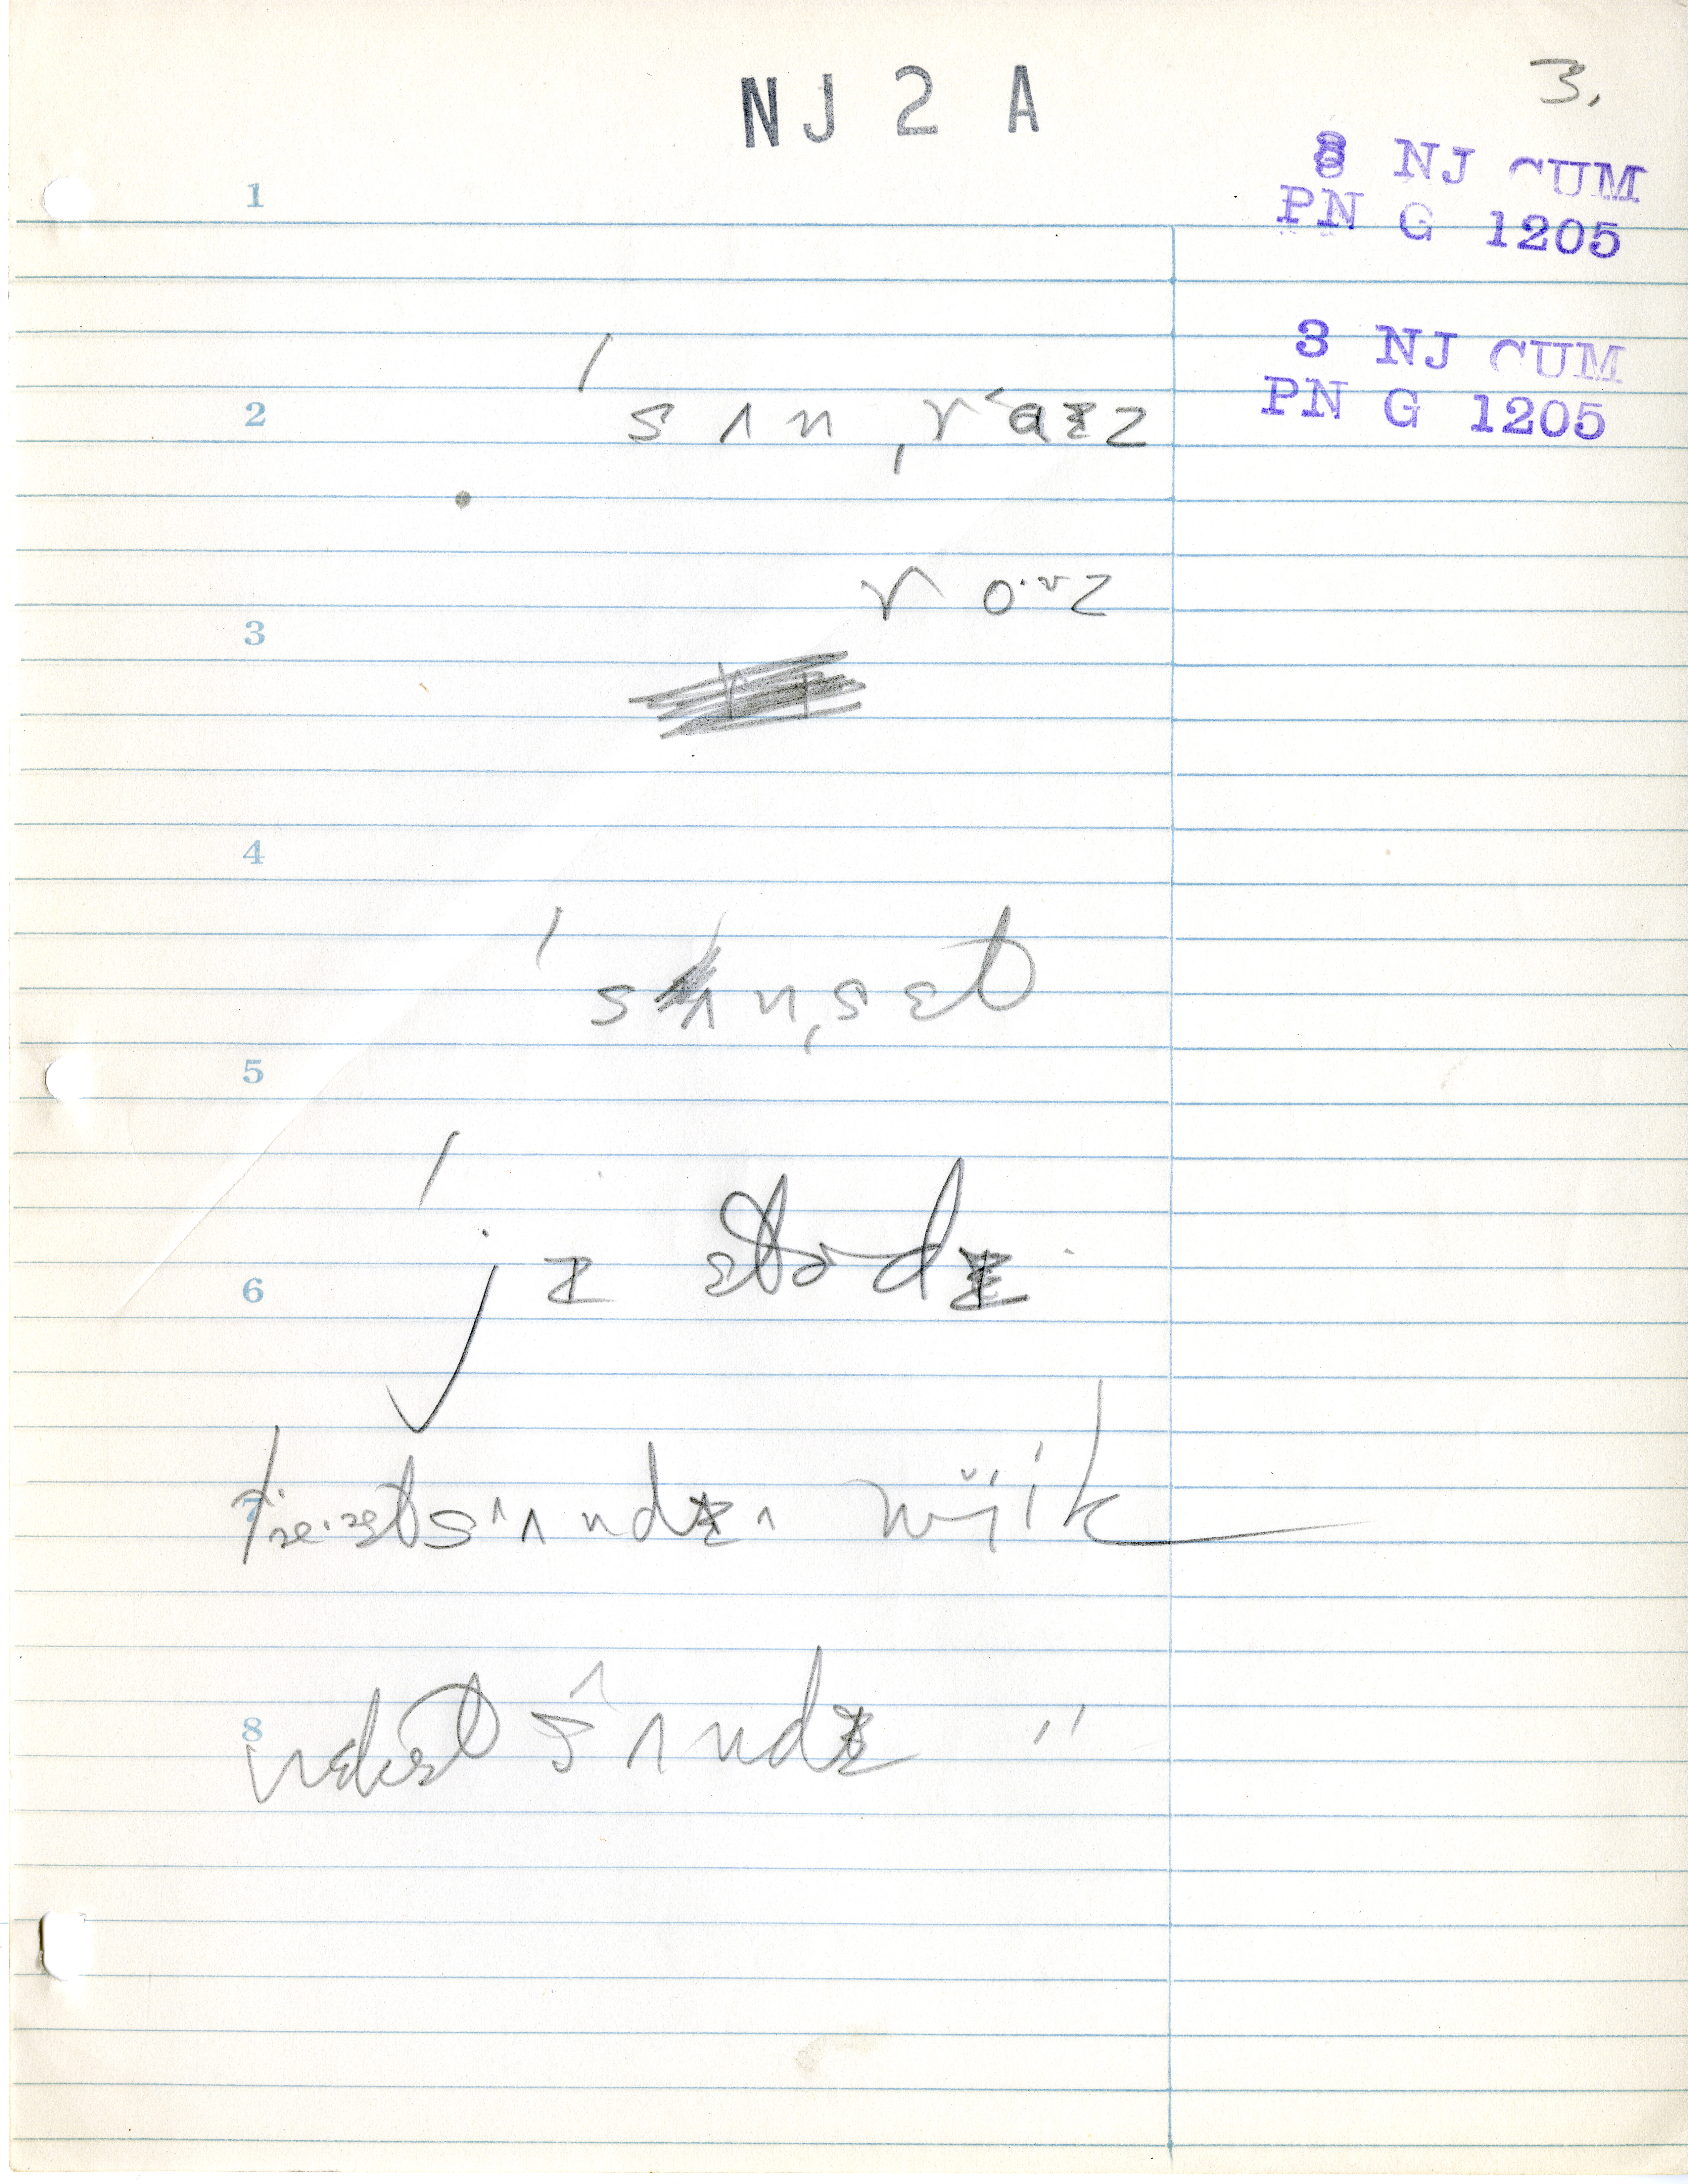 NJ 2 A
3.
8 NJ CUM
PN G 1205
1
3 NJ CUM
PN G 1205
2 ˈsʌnˌraɪz
roˑᶷz
3
4
ˈsʌnˌsɛt
5
ˈjɛstɚdɪ
6
7 sʌndɪ wiik
8 nɛkst sʌndɪ "